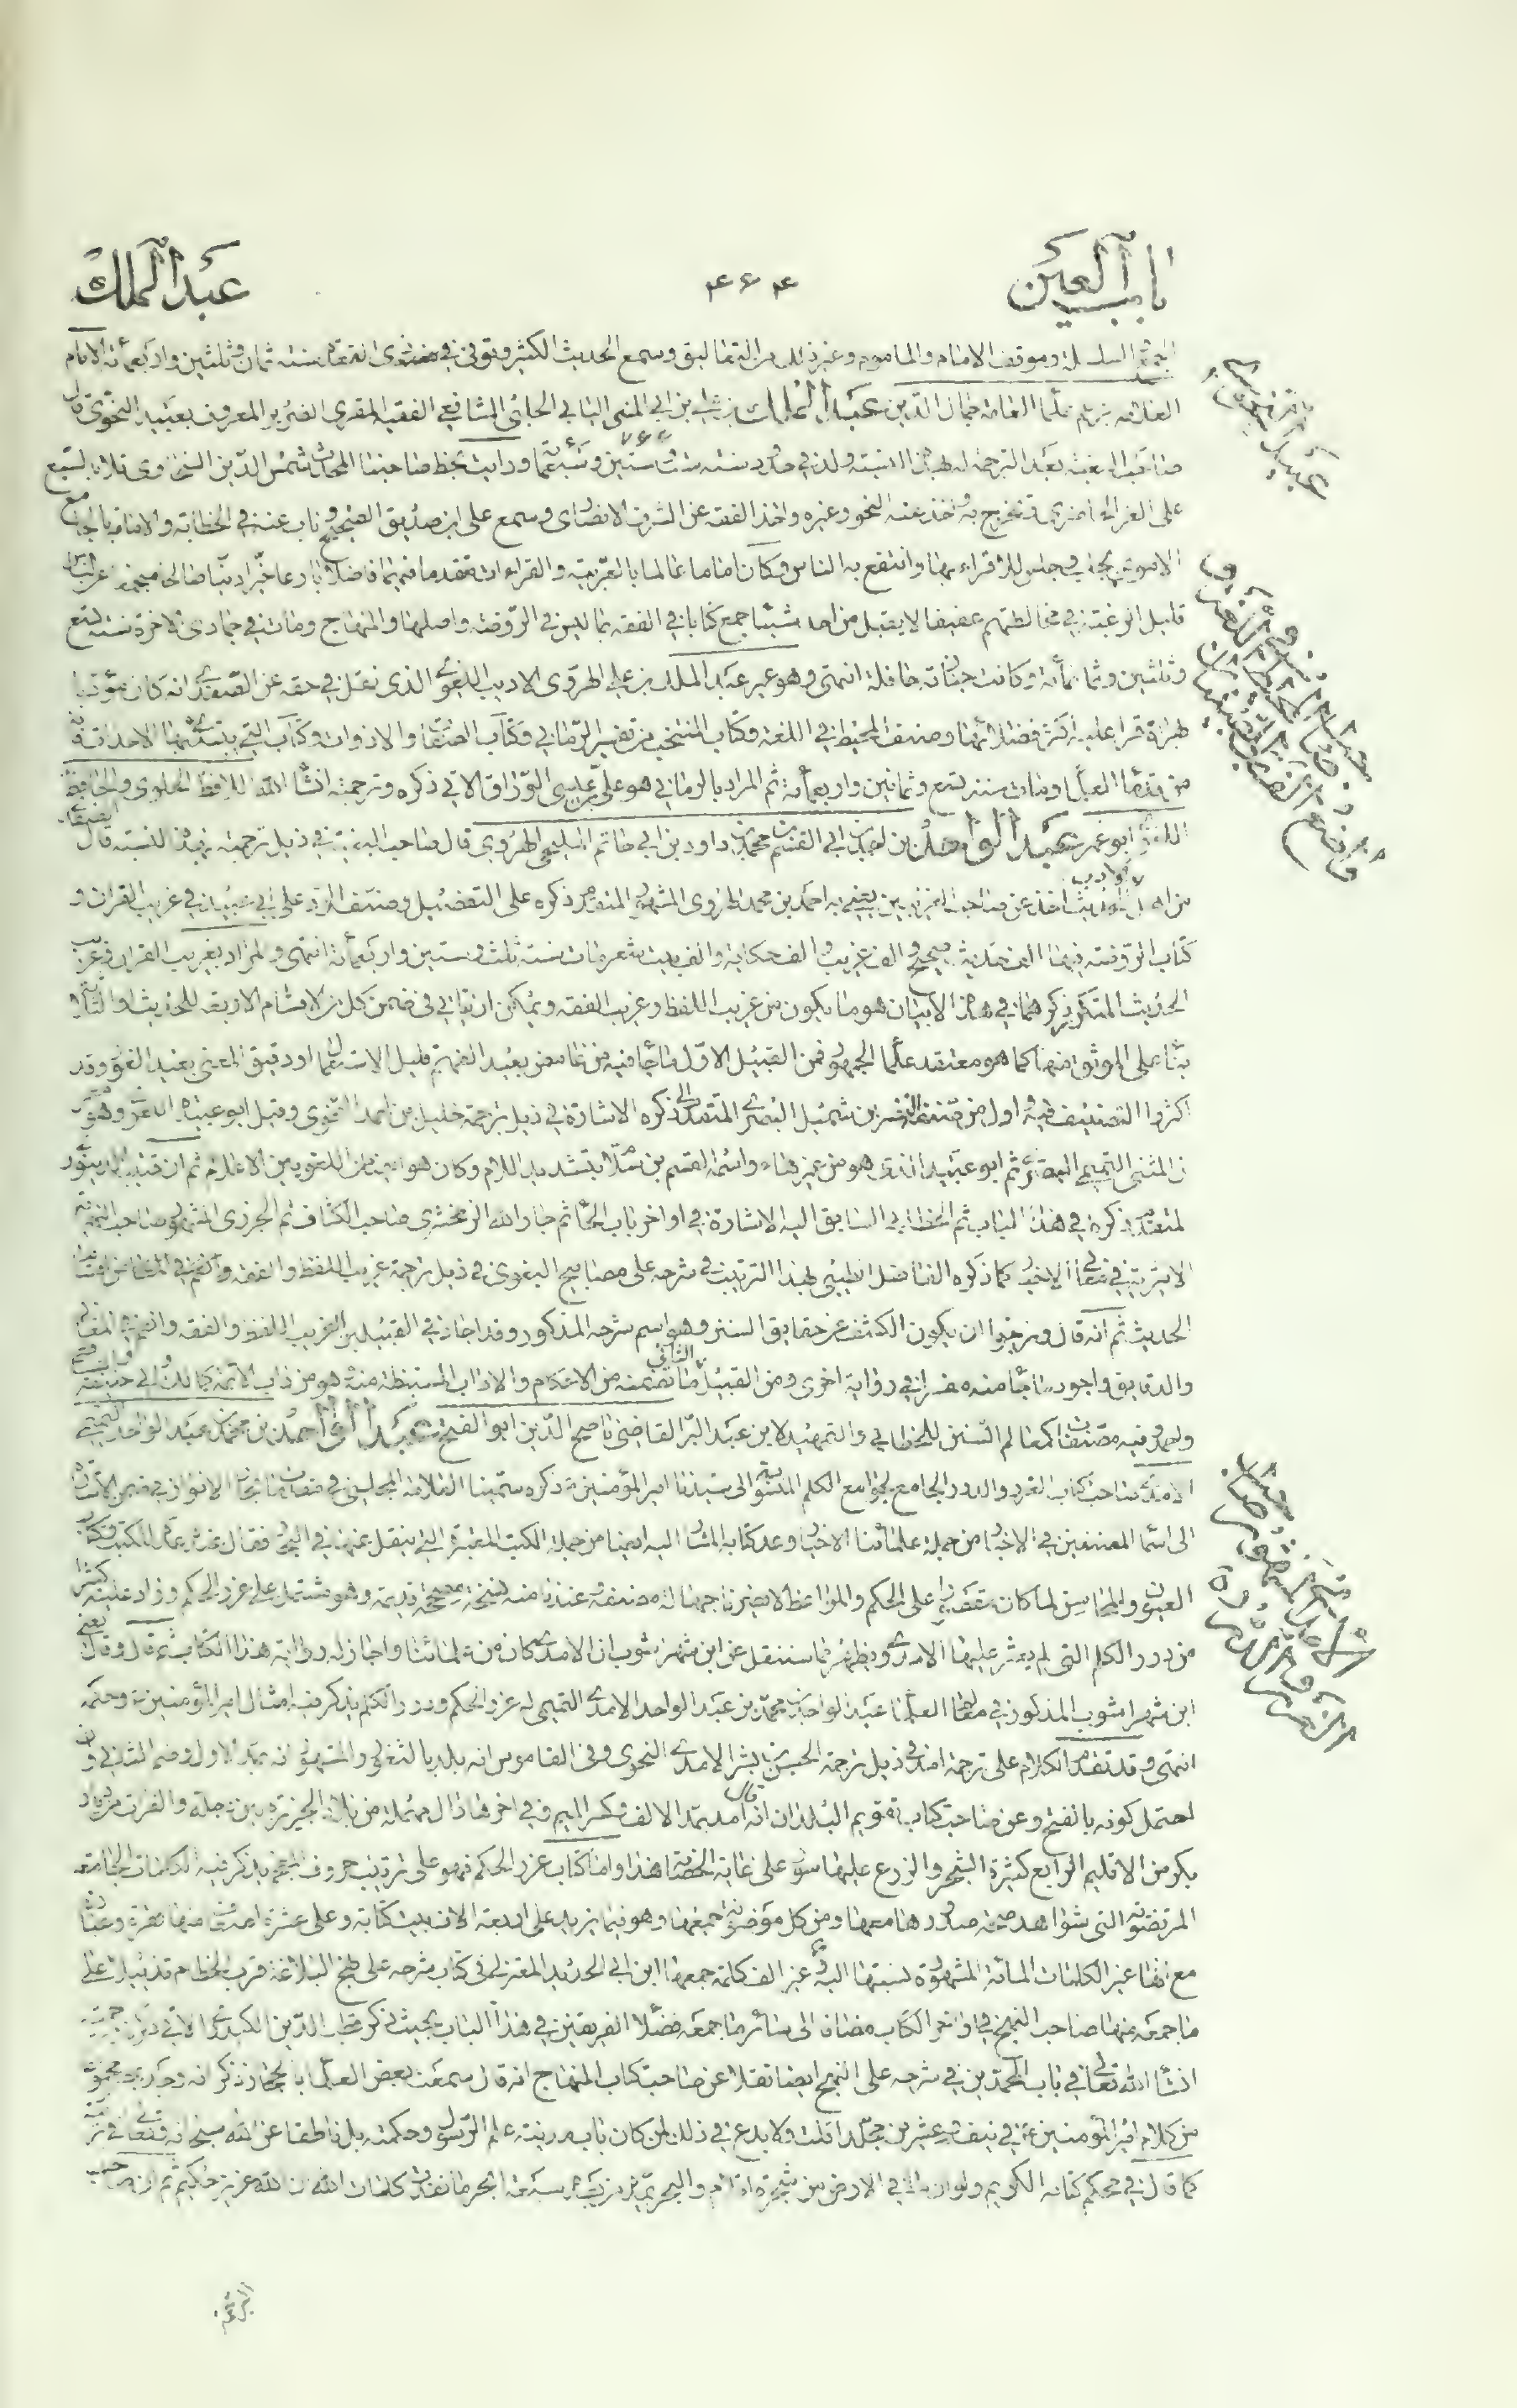 باب العين ۴۶۴ عبد الملك
السلسلة وموقف الامام والماموم وغير ذلك من التعاليق وسمع الحديث الكثير وتوفى في ذى القعدة سنة ثمان وثلثين واربعمأة الامام
العلامة علماء العامة جمال الدين عبد الملك بن ابى المنى البابى الحلبى الشافعى الفقيه المقرى الضرير المعروف بعبيد النحوى قال
صاحب البغية بعد الترجمة له بهذه النسبة ولد في حدود سنة ست وستين وسبعمأة ورايت بخط صاحبنا المحدث شمس الدين السخاوى تلا بالسبع
على العز فتخرج به واخذ عنه النحو وغيره واخذ الفقه عن الشرف الانصارى وسمع على ابن صديق الصحيح وناب عنه في الخطابة والامامة بالجامع
الاموى بحلب وجلس للاقراء بها وانتفع به الناس وكان اماما عالما بالعربية والقراءات متقدما فيهما فاضلا بارعا خيرا دينا صالحا منجمعا عن الناس
قليل الرغبة في مخالطتهم عفيفا لا يقبل من احد شيئا جمع كتابا في الفقه مما ليس في الروضة واصلها والمنهاج ومات في جمادى الاخرة سنة تسع
وثلثين وثمانمأة وكانت جنازته حافلة انتهى وهو غير عبد الملك بن على الهروى الاديب اللغوى الذى نقل في حقه عن الصفدى انه كان مؤدبا
بهراة قرا عليه اكثر فضلائها وصنف المحيط في اللغة وكتاب المنتخب من تفسير الرمانى وكتاب الصفات والادوات وكتاب التى
ومات سنة تسع وثمانين واربعمأة ثم المراد بالرمانى هو على بن عيسى الوراق الاتى ذكره وترجمته انشاء الله
اللغوى ابو عمر عبد الواحد بن احمد بن ابى القسم بن محمد بن داود بن ابى حاتم المليحى الهروى قال صاحب البغية في ذيل ترجمته بهذه النسبة قال
من اهل الحديث اخذ عن صاحب الغريبين يعنى به احمد بن محمد الهروى المشهور المتقدم ذكره على التفصيل وصنف الرد على ابى عبيد في غريب القران و
كتاب الروضة فيها الف حديث صحيح والف غريب والف حكاية والف بيت شعر مات سنة ثلث وستين واربعمأة انتهى والمراد بغريب القران وغريب
الحديث المتكرر ذكرهما في هذا البيان هو ما يكون من غريب اللفظ وغريب الفقه ويمكن
كما هو معتقد علماء الجمهور فمن القبيل الاول ما جاء فيه من غامض بعيد الفهم قليل الاستعمال او دقيق المعنى بعيد الغور وقد
اكثروا التصنيف فيه واول من صنف النضر بن شميل البصرى المتقدم الى ذكره الاشارة في ذيل ترجمة خليل بن احمد النحوى وقيل ابو عبيدة اللغوى وهو
بن المثنى التيمى البصرى ثم ابو عبيد الذى هو من غير هاء واسمه القسم بن سلام بتشديد اللام وكان هو ايضا من اللغويين الاعلام ثم ابن قتيبة الدينورى
المتقدم ذكره في هذا الباب ثم الخطابى السابق اليه الاشارة في اواخر باب الحاء ثم جار الله الزمخشرى صاحب الكشاف ثم الجزرى المشهور صاحب النهاية
الاثيرية في كما ذكره الفاضل الطيبى بهذا الترتيب في شرحه على مصابيح البغوى في ذيل ترجمة غريب اللفظ والفقه
الحديث ثم انه قال ونرجو ان يكون الكشف عن حقايق السنن وهو اسم شرحه المذكور وقد اجاد في القبيلين الغريب اللفظ والفقه
والدقايق واجود ما جاء منه مفسرا في رواية اخرى ومن القبيل الثانى ما تضمنه من الاحكام والاداب المستنبطة منه هو من داب الائمة كمالك وابى حنيفة
فيه مصنفات كمعالم السنن للخطابى والتمهيد لابن عبد البر القاضى ناصح الدين ابو الفتح عبد الواحد بن محمد بن عبد الواحد التميمى
الامدى صاحب كتاب الغرر والدرر الجامع لجوامع الكلم المنسوبة الى سيدنا امير المؤمنين ذكره سمينا العلامة المجلسى في مقدمات بحار الانوار
الى اسماء المصنفين في الاخبار من جملة علمائنا الاخيار وعد كتابه المشار اليه ايضا من جملة الكتب المعتبرة التى ينقل عنها في البحار فقال
العيون والمحاسن لما كان مقصورا على الحكم والمواعظ لا يضرنا جهالة مصنفه وعندنا منه نسخة صحيحة قديمة وهو مشتمل على غرر الحكم وزاد عليه كثيرا
من درر الكلم التى لم يعثر عليها الامدى ويظهر مما سننقل عن ابن شهراشوب ان الامدى كان من علمائنا واجاز له رواية هذا الكتاب ثم قال وقال يعنى
ابن شهراشوب المذكور في معالم العلماء عبد الواحد بن محمد بن عبد الواحد الامدى التميمى له غرر الحكم ودرر الكلم يذكر فيه امثال امير المؤمنين وحكمه
انتهى وقد تقدم الكلام على ترجمة امد في ذيل ترجمة الحسن بن بشر الامدى النحوى وفى القاموس انه بلد بالثغور والمشهور انه بمد الاول وضم الثانى وان
احتمل كونه بالفتح وعن صاحب كتاب تقويم البلدان انه قال امد بمد الالف وكسر الميم وفى اخرها دال مهملة من بلاد الجزيرة بين دجلة والفرات من ديار
بكر من الاقليم الرابع كثيرة الشجر والزرع عليها سور على غاية الحصانة هذا واما كتاب غرر الحكم فهو على ترتيب حروف المعجم يذكر فيه الكلمات الجامعة
المرتضوية التى شواهد صحة صدورها معها ومن كل موضع جمعها وهو فيما يزيد على اربعة الاف بيت كتابة وعلى عشرة
مع انها غير الكلمات المأة المشهورة نسبتها اليه وغير الف كلمة جمعها ابن ابى الحديد المعتزلى في كتاب شرحه على نهج البلاغة قرب الختام تذييلا على
ما جمعه منها صاحب النهج في اواخر الكتاب مضافة الى سائر ما جمعه فضلاء الفريقين في هذا الباب بحيث ذكر قطب الدين الكيدرى الاتى ترجمته
انشاء الله تعالى في باب المحمدين في شرحه على النهج ايضا نقلا عن صاحب كتاب المنهاج انه قال سمعت بعض العلماء بالحجاز ذكر انه وجد بمصر مجموع
من كلام امير المؤمنين في نيف وعشرين مجلدا قلت ولا بدع في ذلك لمن كان باب مدينة علم الرسول وحكمته بل ناطقا عن الله سبحانه وتعالى
كما قال في محكم كتابه الكريم ولو ان ما في الارض من شجرة اقلام والبحر يمده من بعده سبعة ابحر ما نفدت كلمات الله ان الله عزيز حكيم ثم ان صاحب